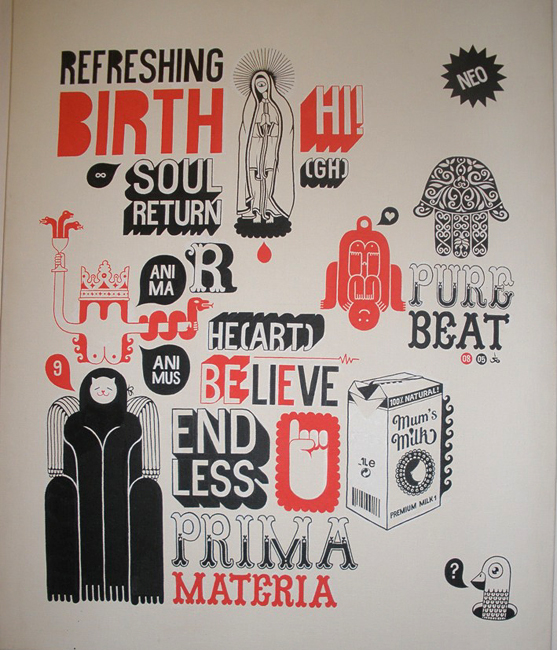 REFRESHING
BIRTH
HI!
NEO
(GH)
∞
SOUL
RETURN
ANI
MA
R
PURE
BEAT
08 05 ॐ
HE(ART)
9
ANI
MUS
BELIEVE
END
LESS
100% NATURAL!
Mum's
Milk
.1Le
PREMIUM MILK!
PRIMA
MATERIA
?